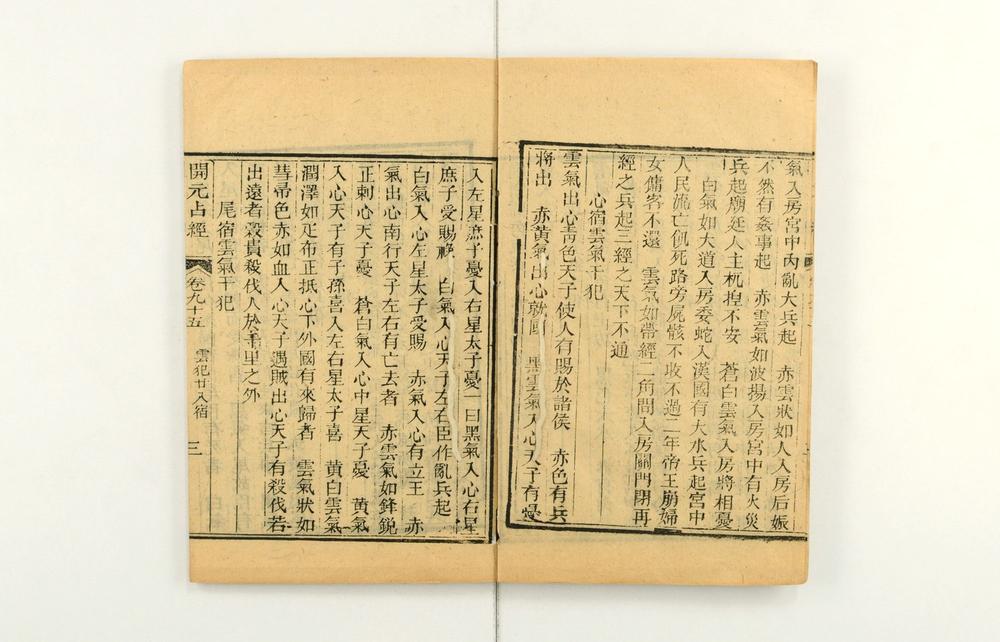 氣入房宮中內亂大兵起　赤雲狀如人入房后娠
不然有姦事起　赤雲氣如波揚入房宮中有火災
兵起廟廷人主杌揘不安　蒼白雲氣入房將相憂
白氣如大道入房委蛇入漢國有大水兵起宮中
人民流亡飢死路旁屍骸不收不過二年帝王崩婦
女傭客不還　雲氣如帶經二角間入房關門閉再
經之兵起三經之天下不通
心宿雲氣干犯
雲氣出心青色天子使人有賜於諸侯　赤色有兵
將出　赤黃氣出心　黑雲氣入心天子有憂
入左星庶子憂入右星太子憂一曰黑氣入心右星
庶子受賜　白氣入心天子左右臣作亂兵起
白氣入心左星太子受賜　赤氣入心有立王　赤
氣出心南行天子左右有亡去者　赤雲氣如鋒銳
正刺心天子憂　蒼白氣入心中星天子憂　黃氣
入心天子有子孫喜入左右星太子喜　黃白雲氣
潤澤如疋布正抵心下外國有來歸者　雲氣狀如
彗帚色赤如血入心天子遇賊出心天子有殺伐若
出遠者穀貴殺伐人於千里之外
尾宿雲氣干犯
開元占經　卷九十五　雲犯廿八宿　三